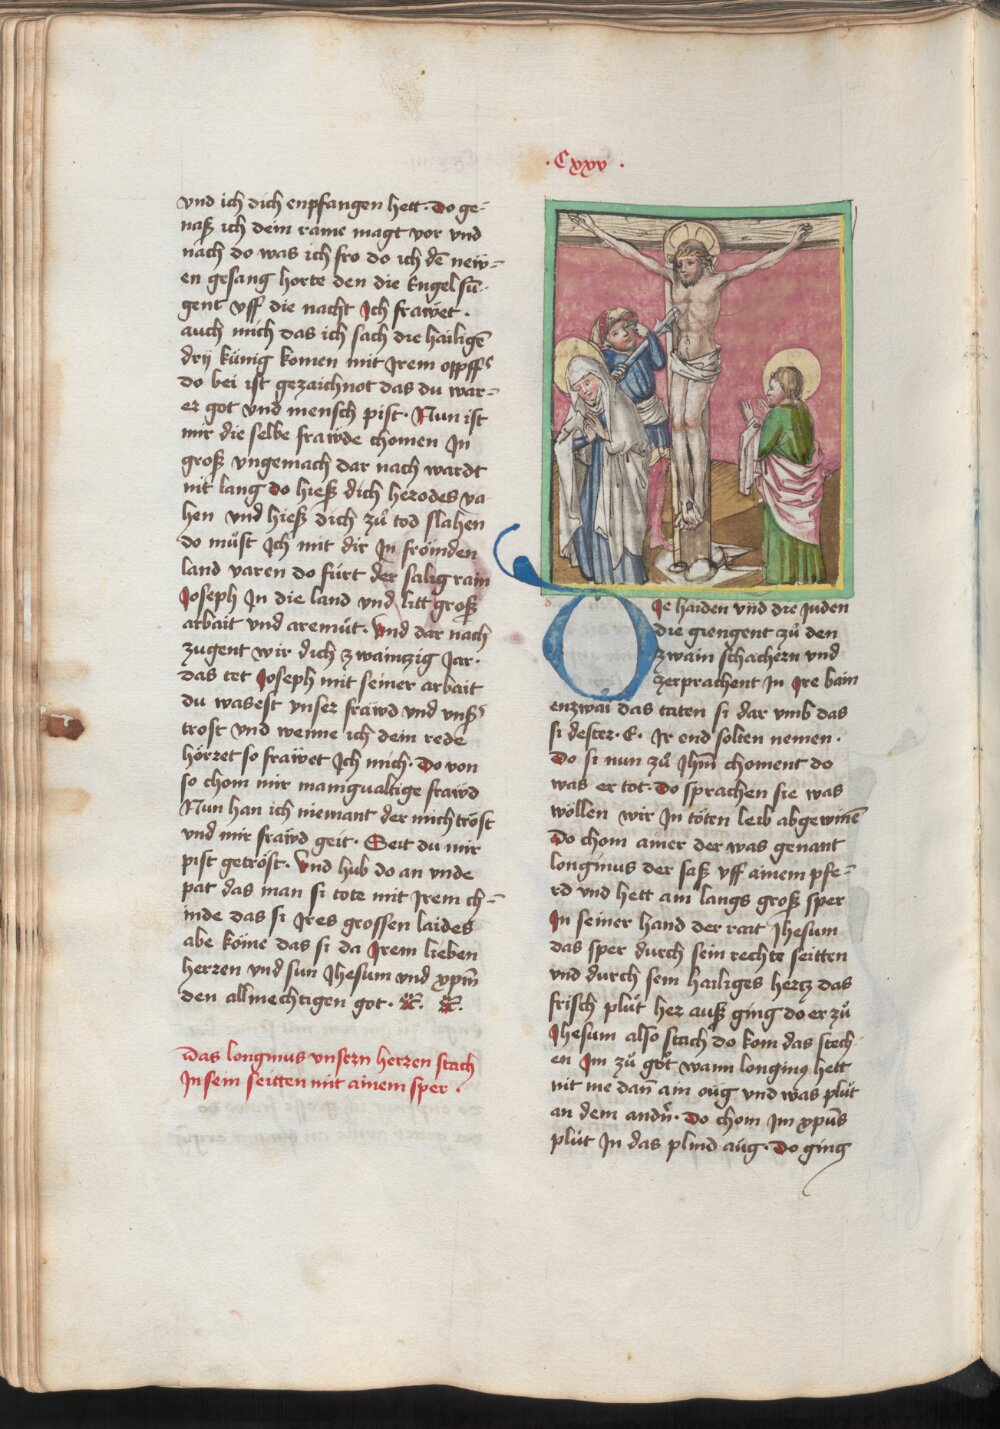 · Cxxv ·
vnd ich dich enpfangen hett · Do ge⸗
naß ich dem raine magt vor vnd
nach do was ich fro do ich dē new⸗
en gesang horte den die Engel sū⸗
gent vff die nacht Ich frawet ·
auch mich das ich sach die hailigē
drij künig komen mit Jrem opffʾ
do bei ist gezaichnot das du war⸗
er got vnd mensch pist · Nun ist
mir die selbe frawde chomen In
groß vngemach dar nach wardt
nit lang do hieß dich herodes va
hen vnd hieß dich zů tod slahen
do můst Ich mit dir In fröinden
land varen do fürt der salig rain
Joseph In die land vnd litt groß
arbait vnd aremüt · Vnd dar nach
zugent wir dich zwainzig Jar ·
das tet Joseph mit seiner arbait
du wasest vnser frawd vnd vnßʾ
trost vnd wenne ich dein rede
hörzet so frawet Ich mich · Do von
so chom mir manigualtige frawd
Nun han ich niemant der mich tröst
vnd mir frawd geit · Seit du mir
pist getröst · Vnd hub do an vnde
pat das man si tote mit Jrem ch⸗
inde das si Jres grossen laides
abe köme das si da Jrem lieben
herzen vnd sun Jhesum vnd xpm̄
den allmechtigen got ·
Das longinus vnsern herzen stach
In sein seitten mit ainem sper ·
Die haiden vnd die Juden
die giengent zů den
zwain schachern vnd
zerprachent In Jre bain
enzwai das taten si dar vmb das
si dester · E · Jr end solten nemen ·
Do si nun zů Jhm̄ choment do
was er tot · Do sprachen sie was
wöllen wir In töten leib abgewinē
Do chom ainer der was genant
longinus der saß vff ainem pfe⸗
rd vnd hett ain langs groß sper
In seiner hand der rait Jhesum
das sper durch sein rechte seitten
vnd durch sein hailiges hertz das
frisch plüt her auß ging do er zů
Jhesum also stach do kom das stech
en Im zů göt wann longinꝰ hett
nit me dañ ain oüg vnd was plüt
an dem andʾn · Do chom Im xpūs
plüt In das plind aüg · Do ging